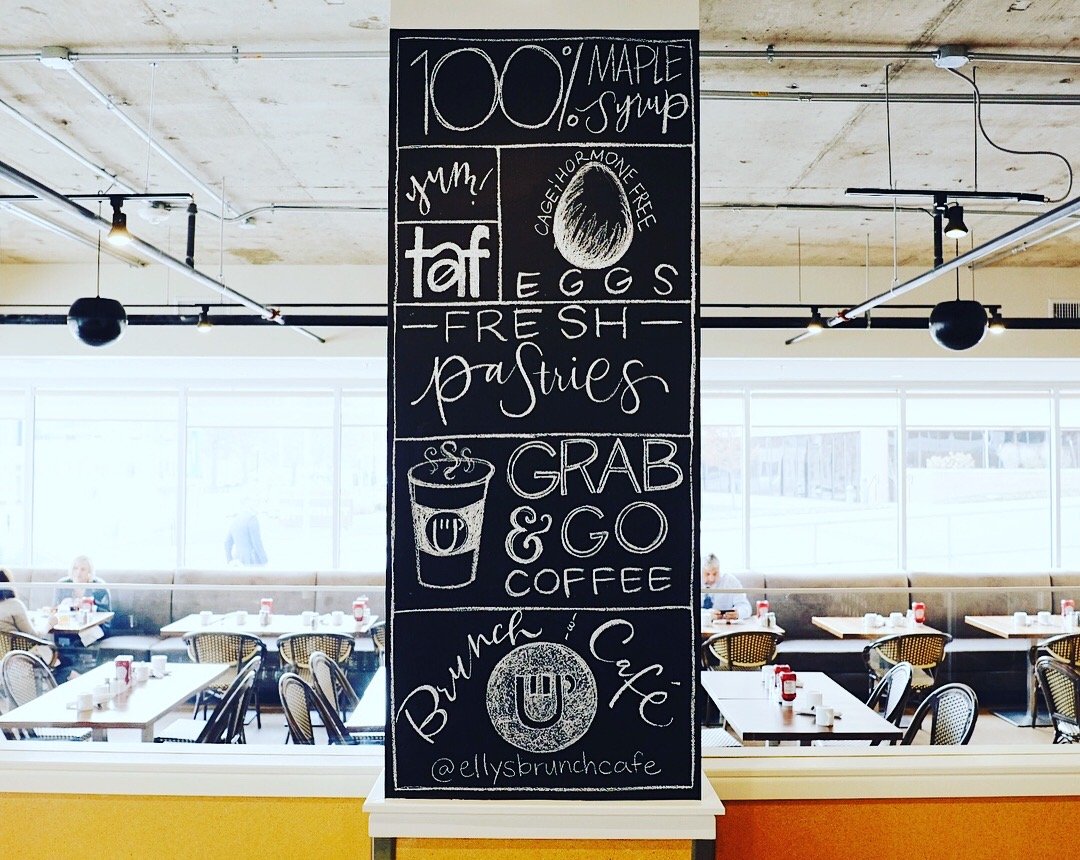 100% MAPLE
syrup
yum!
taf
CAGE/HORMONE FREE
EGGS
— FRESH —
pastries
GRAB
& GO
COFFEE
Brunch & Café
@ellysbrunchcafe